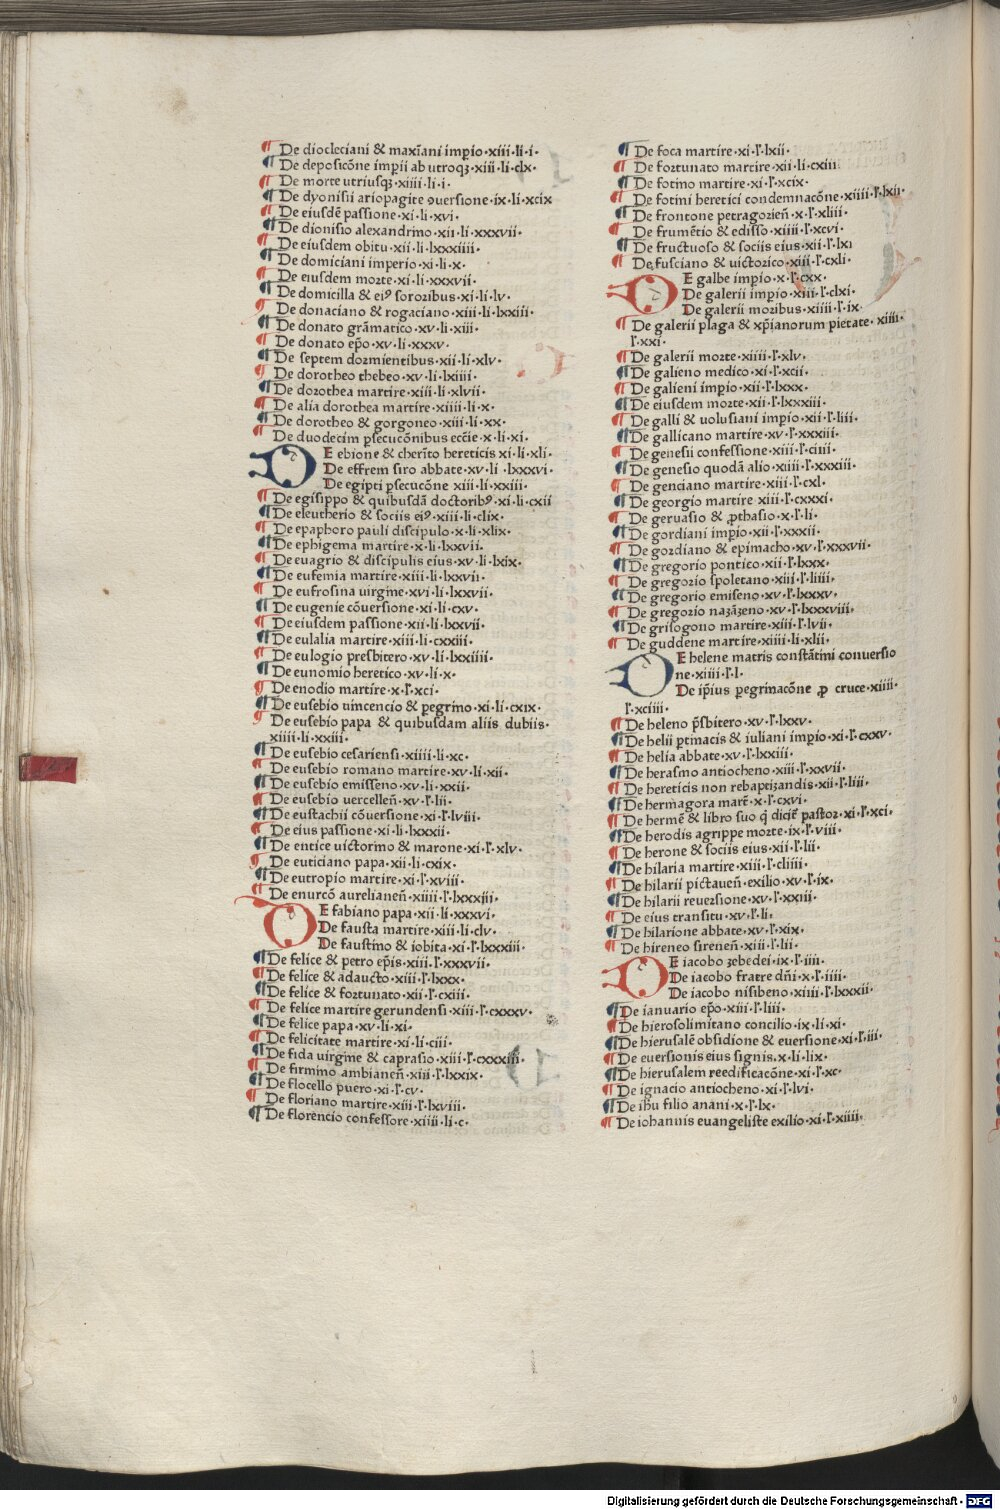 De diocleciani & maxīani imp̄io·xiii·li·i·
De deposicōne imp̄ii ab utroqꝫ·xiii·li·clx·
De morte utriusqꝫ·xiiii·li·i·
De dyonisii ariopagite ꝯuersione·ix·li·xcix
De eiusdē passione·xi·li·xvi·
De dionisio alexandrino·xii·li·xxxvii·
De eiusdem obitu·xii·li·lxxxiiii·
De domiciani imperio·xi·li·x·
De eiusdem morte·xi·li·xxxvii·
De domicilla & eiꝰ sororibus·xi·li·lv·
De donaciano & rogaciano·xiii·li·lxxiii·
De donato grāmatico·xv·li·xiii·
De donato ep̄o·xv·li·xxxv·
De septem dormientibus·xii·li·xlv·
De dorotheo thebeo·xv·li·lxiiii·
De dorothea martire·xiii·li·xlvii·
De alia dorothea martire·xiiii·li·x·
De dorotheo & gorgoneo·xiii·li·xx·
De duodecim p̄secucōnibus eccīe·x·li·xi·
DE ebione & cherīto hereticis xi·li·xli·
De effrem siro abbate·xv·li·lxxxvi·
De egipti p̄secucōne xiii·li·xxiii·
De egisippo & quibusdā doctoribꝰ·xi·li·cxii
De eleutherio & sociis eiꝰ·xiii·li·clix·
De epaphoro pauli discipulo·x·li·xlix·
De ephigema martire·x·li·lxxvii·
De euagrio & discipulis eius·xv·li·lxix·
De eufemia martire·xiii·li·lxxvii·
De eufrosina uirgine·xvi·li·lxxvii·
De eugenie cōuersione·xi·li·cxv·
De eiusdem passione·xii·li·lxxvii·
De eulalia martire·xiii·li·cxxiii·
De eulogio presbitero·xv·li·lxxiiii·
De eunomio heretico·xv·li·x·
De enodio martire·x·ľ·xci·
De eusebio uincencio & p̱egrino·xi·li·cxix·
De eusebio papa & quibusdam aliis dubiis·
xiiii·li·xxiii·
De eusebio cesariensi·xiiii·li·xc·
De eusebio romano martire·xv·li·xii·
De eusebio emisseno·xv·li·xxii·
De eusebio uercelleñ·xv·ľ·lii·
De eustachii cōuersione·xi·ľ·lviii·
De eius passione·xi·li·lxxxii·
De entice uictorino & marone·xi·ľ·xlv·
De euticiano papa·xii·li·cxix·
De eutropio martire·xi·ľ·xviii·
De enurcō aurelianeñ·xiiii·ľ·lxxxiii·
DE fabiano papa·xii·li·xxxvi·
De fausta martire·xiii·li·clv·
De faustino & iobita·xi·ľ·lxxxiii·
De felice & petro ep̄is·xiii·ľ·xxxvii·
De felice & adaucto·xiii·ľ·lxxx·
De felice & fortunato·xii·ľ·cxiii·
De felice martire gerundensi·xiii·ľ·cxxxv·
De felice papa·xv·li·xi·
De felicitate martire·xi·li·ciii·
De fida uirgine & caprasio·xiii·ľ·cxxxiii·
De firmino ambianeñ·xiii·ľ·lxxix·
De flocello puero·xi·ľ·cv·
De floriano martire·xiii·ľ·lxviii·
De florencio confessore·xiiii·li·c·
De foca martire·xi·ľ·lxii·
De fortunato martire·xii·li·cxiii·
De fotino martire·xi·ľ·xcix·
De fotini heretici condemnacōne·xiiii·ľ·lxii·
De frontone petragorieñ·x·ľ·xliii·
De frumētio & edisso·xiiii·ľ·xcvi·
De fructuoso & sociis eius·xii·ľ·lxi
De fusciano & uictorico·xiii·ľ·cxli·
DE galbe imp̄io·x·ľ·cxx·
De galerii imp̄io·xiii·ľ·clxi·
De galerii moribus·xiiii·ľ·ix·
De galerii plaga & xp̄ianorum pietate·xiiii·
ľ·xxi·
De galerii morte·xiiii·ľ·xlv·
De galieno medico·xi·ľ·xcii·
De galieni imp̄io·xii·ľ·lxxx·
De eiusdem morte·xii·ľ·lxxxiii·
De galli & uolusiani imp̄io·xii·ľ·liii·
De gallicano martire·xv·ľ·xxxiii·
De genesii confessione·xiii·ľ·ciiii·
De genesio quodā alio·xiiii·ľ·xxxiii·
De genciano martire·xiii·ľ·cxl·
De georgio martire xiii·ľ·cxxxi·
De geruasio & ꝓthasio·x·ľ·li·
De gordiani imp̄io·xii·ľ·xxxii·
De gordiano & epimacho·xv·ľ·xxxvii·
De gregorio pontico·xii·ľ·lxxx·
De gregorio spoletano·xiii·ľ·liiii·
De gregorio emiseno·xv·ľ·lxxxv·
De gregorio naꝫāꝫeno·xv·ľ·lxxxviii·
De grisogono martire·xiii·ľ·lvii·
De guddene martire·xiiii·li·xlii·
DE helene matris constātini conuersio
ne·xiiii·ľ·l·
De ip̄ius p̱egrinacōne ꝓ cruce·xiiii·
ľ·xciiii·
De heleno p̄sbitero·xv·ľ·lxxv·
De helii p̱tinacis & iuliani imp̄io·xi·ľ·cxxv·
De helia abbate·xv·ľ·lxxiii·
De herasmo antiocheno·xiii·ľ·xxvii·
De hereticis non rebaptiꝫandis·xii·ľ·liii·
De hermagora marť·x·ľ·cxvi·
De hermē & libro suo q̄ diciť pastor·xi·ľ·xci·
De herodis agrippe morte·ix·ľ·viii·
De herone & sociis eius·xii·ľ·lii·
De hilaria martire·xiii·ľ·cliiii·
De hilarii pictaueñ·exilio·xv·ľ·ix·
De hilarii reuersione·xv·ľ·xxiii·
De eius transitu·xv·ľ·li·
De hilarione abbate·xv·ľ·xix·
De hireneo sireneñ·xiii·ľ·lii·
DE iacobo ꝫebedei·ix·ľ·iiii·
De iacobo fratre dn̄i·x·ľ·iiii·
De iacobo nisibeno·xiiii·ľ·lxxxii·
De ianuario ep̄o·xiii·ľ·liii·
De hierosolimitano concilio·ix·li·xi·
De hierusalē obsidione & euersione·xi·ľ·iii·
De euersionis eius signis·x·li·lix·
De hierusalem reedificacōne·xi·ľ·xc·
De ignacio antiocheno·xi·ľ·lvi·
De ih̄u filio anani·x·ľ·lx·
De iohannis euangeliste exilio·xi·ľ·xiiii·
Digitalisierung gefördert durch die Deutsche Forschungsgemeinschaft - DFG